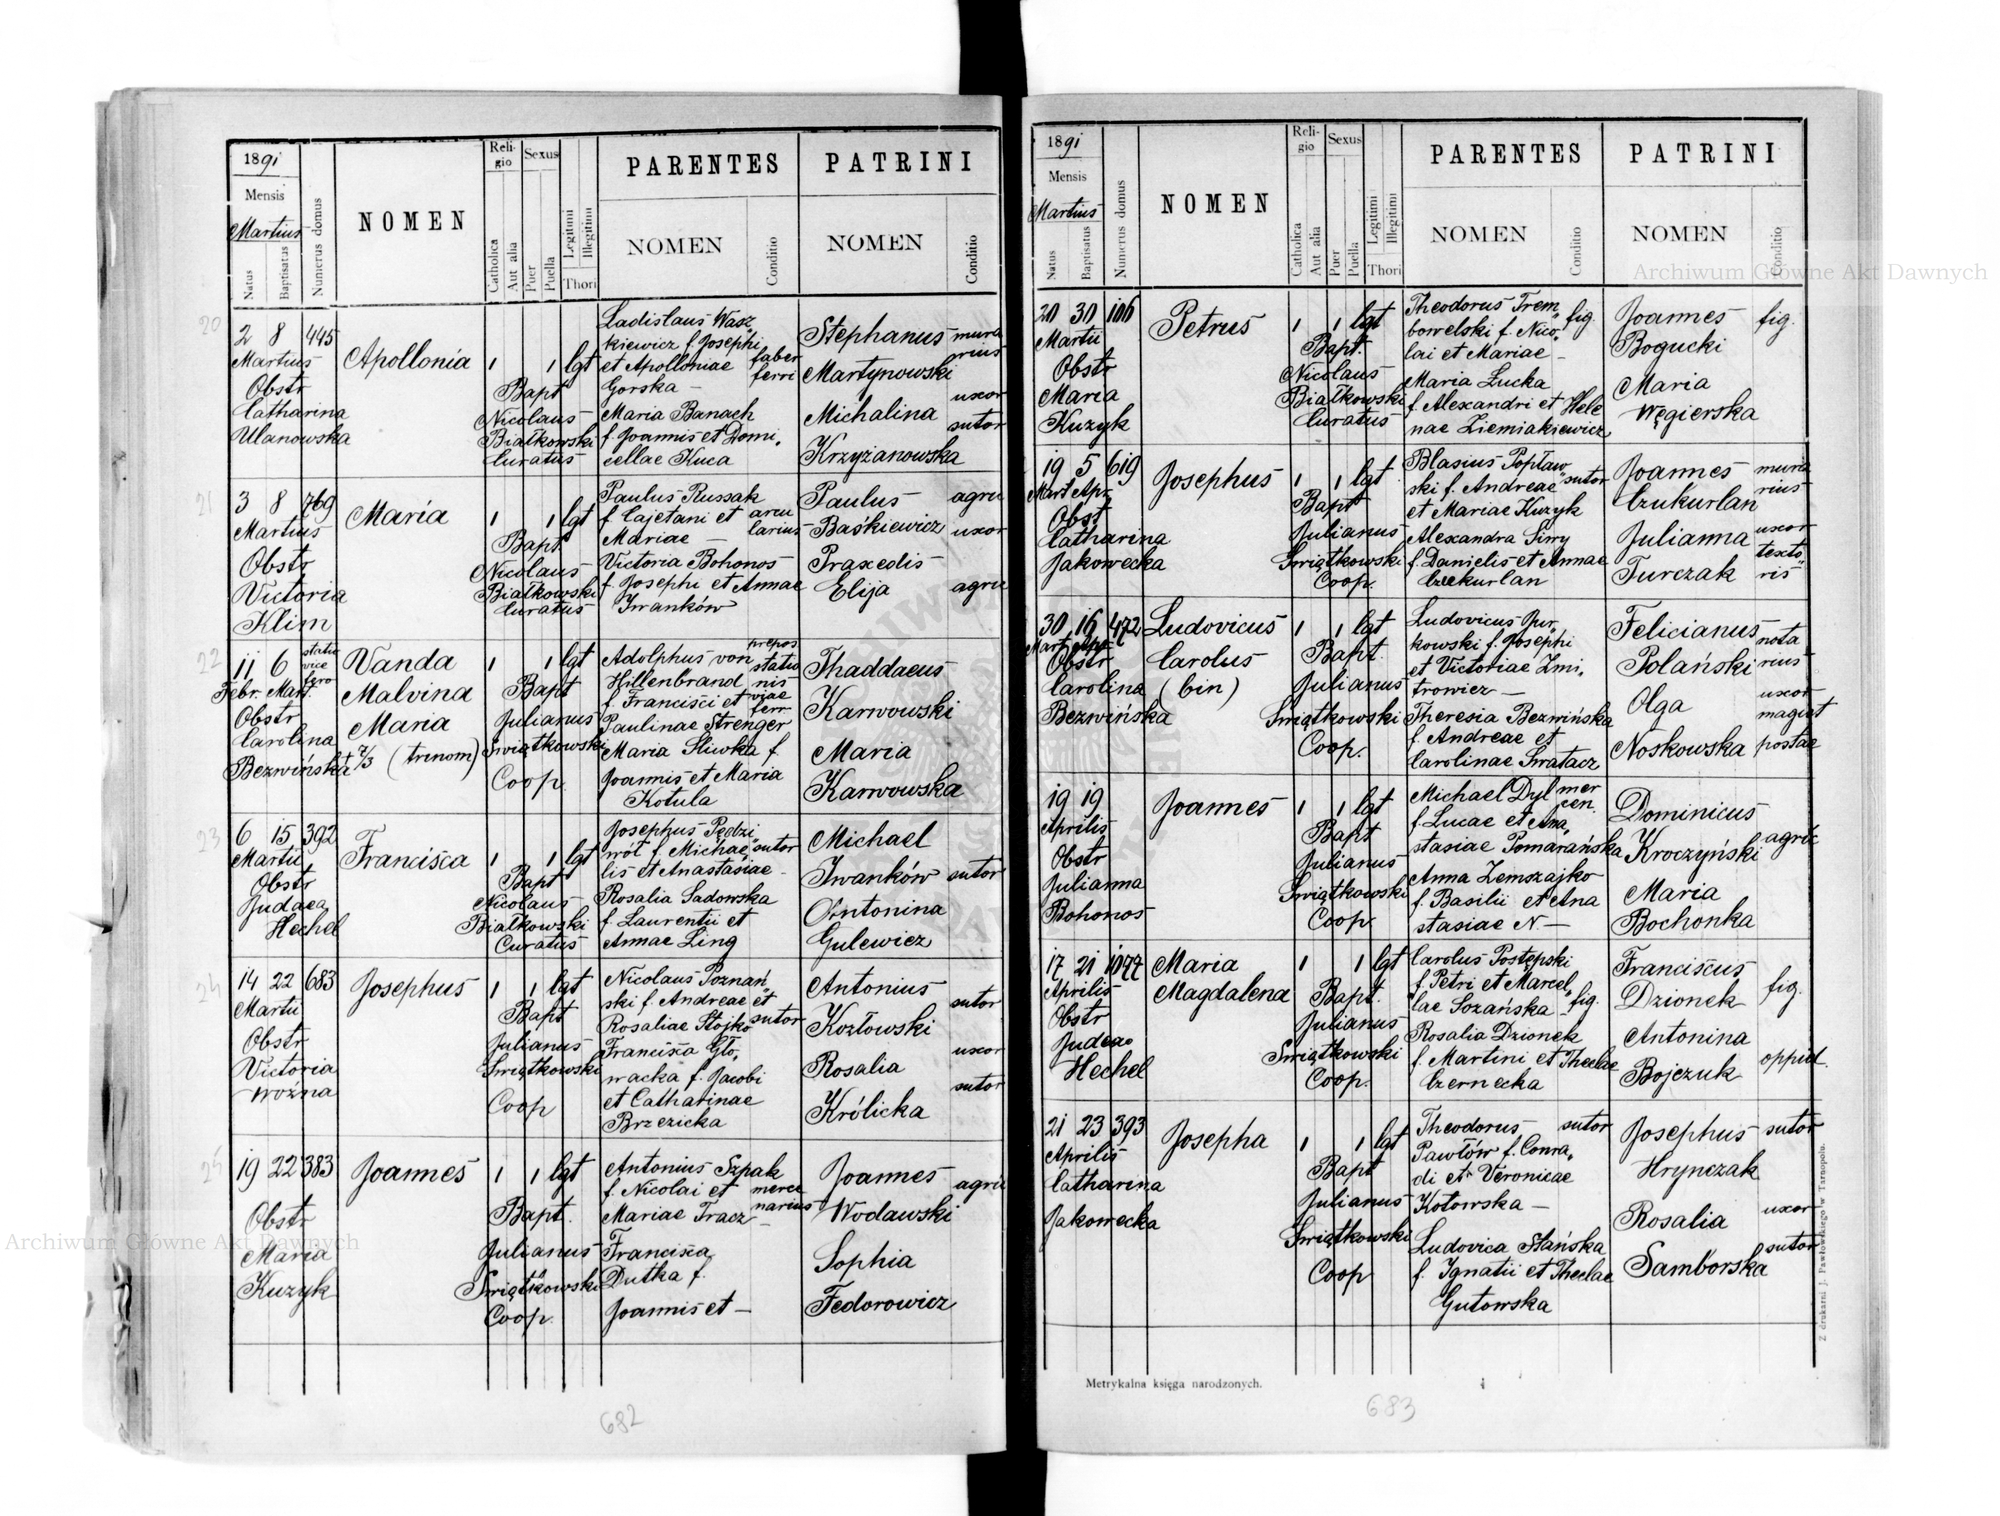 1891
Mensis
Martius
Natus
Baptisatus
Numerus domus
NOMEN
Religio
Catholica
Aut alia
Sexus
Puer
Puella
Legitimi
Illegitimi
Thori
PARENTES
NOMEN
Conditio
PATRINI
NOMEN
Conditio
20
2 8 445
Martius
Obstr
Catharina
Ulanowska
Apollonia
1 1 lgt
Bapt
Nicolaus
Białkowski
Curatus
Ladislaus Wasz„
kiewicz f. Josephi
et Apolloniae
Gorska —
faber
ferri
Maria Banach
f. Joannis et Domi„
cellae Kuca
Stephanus
Martynowski
Michalina
Krzyżanowska
mura
rius
uxor
sutor
21
3 8 769
Martius
Obstr
Victoria
Klim
Maria
1 1 lgt
Bapt
Nicolaus
Białkowski
Curatus
Paulus Russak
f. Cajetani et
Mariae —
arcu
larius
Victoria Bohonos
f. Josephi et Annae
Iwanków
Paulus
Baśkiewicz
Praxedis
Elija
agric
uxor
agric
22
11 6
Febr. Mart.
Obstr
Carolina
Bezwińska
Vanda
Malvina
Maria
7/3 (trinom)
1 1 lgt
Bapt
Julianus
Swiątkowski
Coop.
Adolphus von
Hillenbrand
f. Francisci et
Paulinae Strenger
prepos
statio
nis
viae
ferr
Maria Sliwka f.
Joannis et Maria
Kotula
Thaddaeus
Karwowski
Maria
Karwowska
23
6 15 392
Martii
Obstr
Judaea
Hechel
Francisca
1 1 lgt
Bapt
Nicolaus
Białkowski
Curatus
Josephus Pędzi„
wót f. Michae„ sutor
lis et Anastasiae —
Rosalia Sadowska
f. Laurentii et
Annae Ling
Michael
Iwanków
Antonina
Gulewicz
sutor
24
14 22 683
Martii
Obstr
Victoria
Woźna
Josephus
1 1 lgt
Bapt
Julianus
Swiątkowski
Coop
Nicolaus Poznań„
ski f. Andreae et
Rosaliae Stojko sutor
Francisca Gło„
wacka f. Jacobi
et Catharinae
Brzezicka
Antonius
Kozłowski
Rosalia
Królicka
sutor
uxor
sutor
25
19 22 383
Obstr
Maria
Kuzyk
Joannes
1 1 lgt
Bapt.
Julianus
Swiątkowski
Coop.
Antonius Szpak
f. Nicolai et
Mariae Tracz —
merce
narius
Francisca
Dutka f.
Joannis et —
Joannes
Wodawski
Sophia
Fedorowicz
agric
682
1891
Mensis
Martius
Natus
Baptisatus
Numerus domus
NOMEN
Religio
Catholica
Aut alia
Sexus
Puer
Puella
Legitimi
Illegitimi
Thori
PARENTES
NOMEN
Conditio
PATRINI
NOMEN
Conditio
20 30 106
Martii
Obstr
Maria
Kuzyk
Petrus
1 1 lgt
Bapt.
Nicolaus
Białkowski
Curatus
Theodorus Trem„ fig.
bowelski f. Nico„
lai et Mariae —
Maria Łucka
f. Alexandri et Hele
nae Ziemiakiewicz
Joannes
Bogucki
Maria
Węgierska
fig.
19 5 619
Mart. Apr.
Obst
Catharina
Jakowecka
Josephus
1 1 lgt
Bapt
Julianus
Swiątkowski
Coop.
Blasius Popław„
ski f. Andreae sutor
et Mariae Kuzyk
Alexandra Siny
f. Danielis et Annae
Czekurlan
Joannes
Czukurlan
Julianna
Turczak
mura
rius
uxor
texto„
ris
30 16 472
Mart. Apr.
Obstr
Carolina
Bezwińska
Ludovicus
Carolus
(bin)
1 1 lgt
Bapt.
Julianus
Swiątkowski
Coop.
Ludovicus Jur„
kowski f. Josephi
et Victoriae Zmi„
trowicz —
Theresia Bezwińska
f. Andreae et
Carolinae Swatacz
Felicianus
Polański
Olga
Noskowska
nota
rius
uxor
magist
postae
19 19
Aprilis
Obstr
Julianna
Bohonos
Joannes
1 1 lgt
Bapt
Julianus
Swiątkowski
Coop.
Michael Dyl mer
cen.
f. Lucae et Ana„
stasiae Pomarańska
Anna Zemszajko
f. Basilii et Ana
stasiae N. —
Dominicus
Kroczyński
Maria
Bochonka
agric
17 21 1077
Aprilis
Obstr
Judea
Hechel
Maria
Magdalena
1 1 lgt
Bapt.
Julianus
Swiątkowski
Coop.
Carolus Postępski
f. Petri et Marcel„
lae Sozańska fig.
Rosalia Dzionek
f. Martini et Theclae
Czernecka
Franciscus
Dzionek
Antonina
Bojczuk
fig.
oppid.
21 23 393
Aprilis
Catharina
Jakowecka
Josepha
1 1 lgt
Bapt
Julianus
Swiątkowski
Coop
Theodorus sutor
Pawłów f. Conra„
di et Veronicae
Kotowska —
Ludovica Stańska
f. Ignatii et Theclae
Gutowska
Josephus
Hrynczak
Rosalia
Samborska
sutor
uxor
sutor
Metrykalna księga narodzonych.
1
Z drukarni J. Pawłowskiego w Tarnopolu.
683
Archiwum Główne Akt Dawnych
Archiwum Główne Akt Dawnych